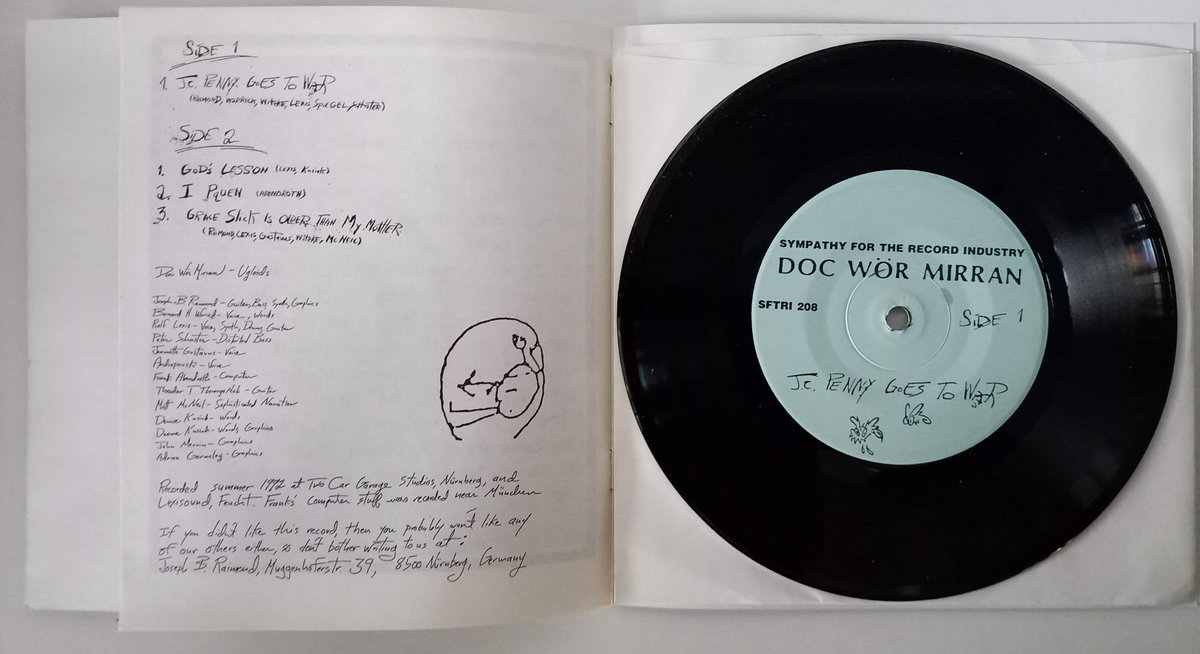 SIDE 1
1. J.C. PENNY GOES TO WAR
(RAIMOND, WORRICK, WITZKE, LEXIS, SPIEGEL, SCHUSTER)
SIDE 2
1. GOD'S LESSON (LEXIS, Kusiak)
2. I PQUEN (ABENDROTH)
3. GRACE Slick IS OLDER THAN My MOTHER
(RAIMOND, LEXIS, GUSTAVUS, WITZKE, McNEIL)
Doc Wör Mirran - Ugloids
Joseph B. Raimond - Guitar, Bass, Synth, Graphics
Bernard H. - Voice, Words
Ralf Lexis - Voice, Synth, Drums, Guitar
Peter Schuster - Distorted Bass
Jeanette Gustavus - Voice
- Voice
Frank Abendroth - Computer
Theodor T. - Guitar
Matt McNeil - Sophisticated Narration
Denise Kusiak - Words
Deanne Kusiak - Words, Graphics
John Merwin - Graphics
Adrian Gormley - Graphics
Recorded summer 1992 at Two Car Garage Studios, Nürnberg, and
Lexisound, Feucht. Frank's computer stuff was recorded near München
If you didn't like this record, then you probably won't like any
of our others either, so don't bother writing to us at:
Joseph B. Raimond, Muggenhoferstr. 39, 8500 Nürnberg, Germany
SYMPATHY FOR THE RECORD INDUSTRY
DOC WÖR MIRRAN
SFTRI 208
SIDE 1
J.C. PENNY GOES TO WAR